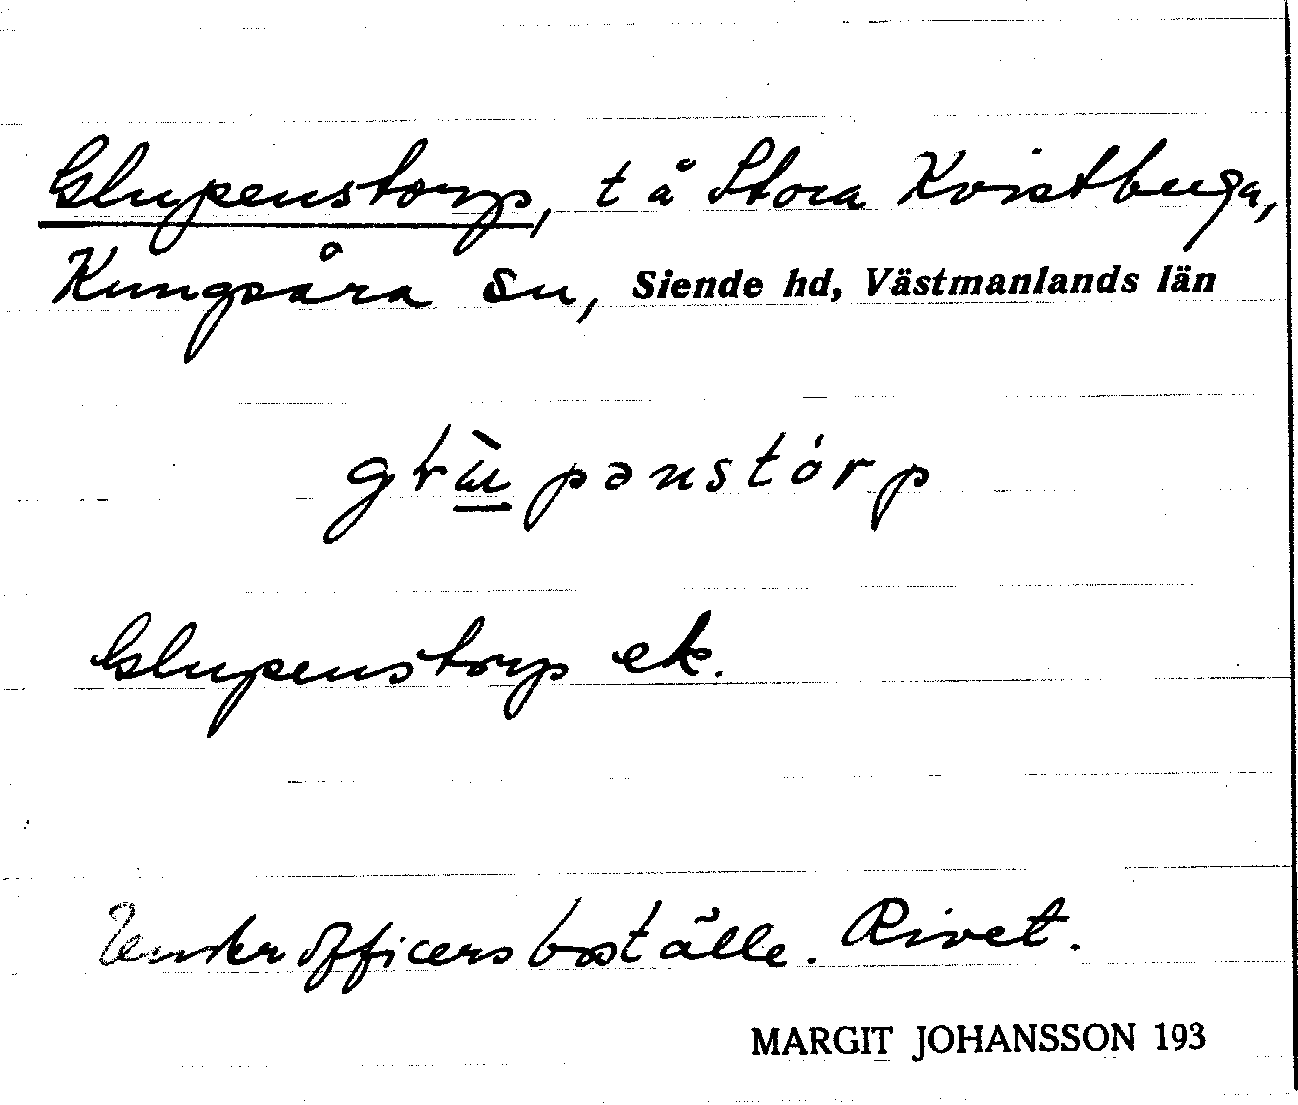 Glupenstorp, t å Stora Kvistberga,
Kungsåra sn, Siende hd, Västmanlands län
glùpənstórp
Glupenstorp ek.
Underofficersboställe. Rivet.
MARGIT JOHANSSON 193